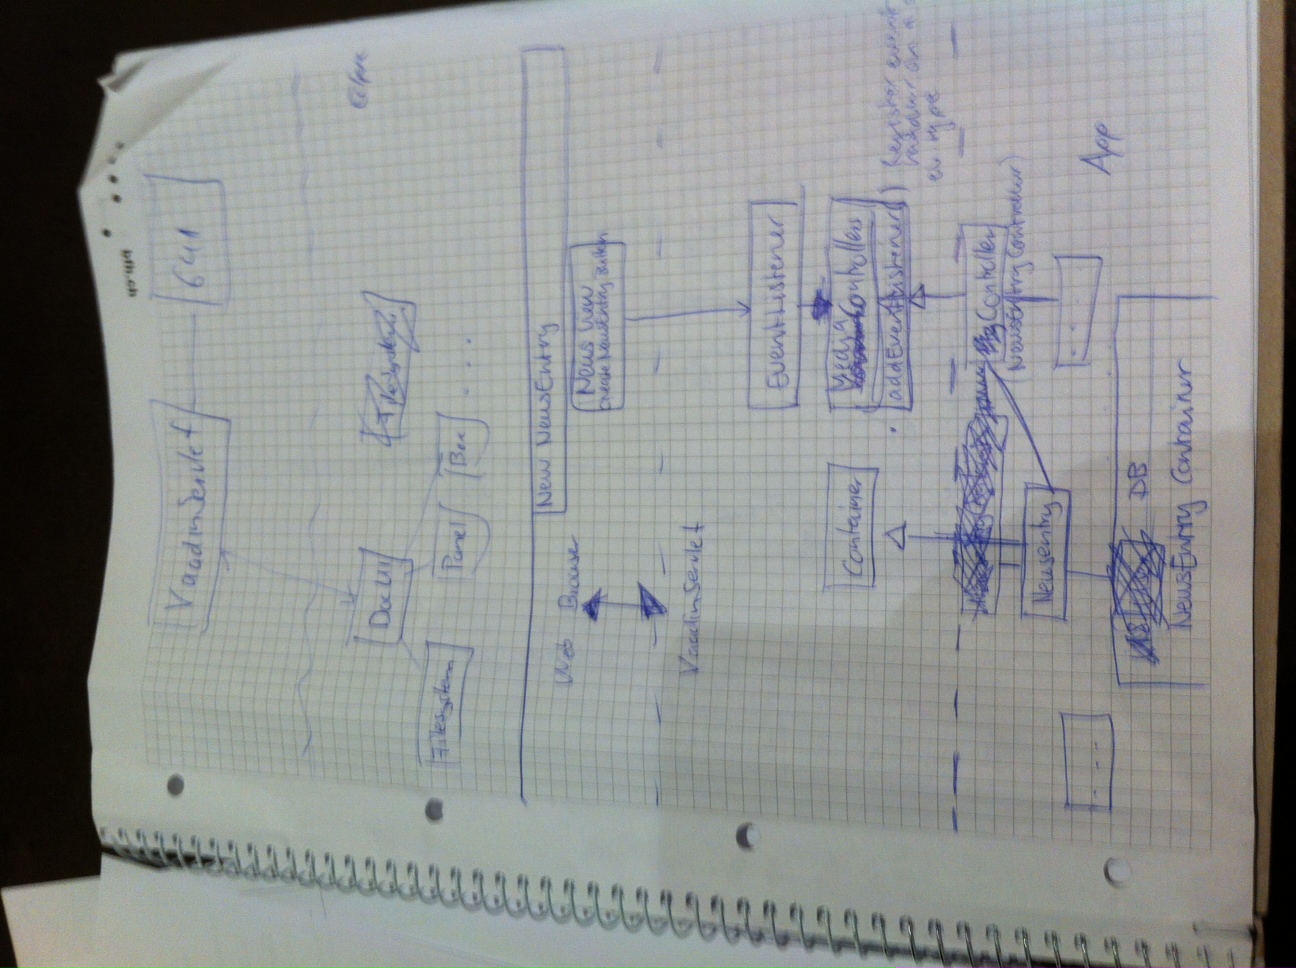 bfh.ch
VaadinServlet
Filesystem
Panel
Box
. . .
New NewsEntry
Web Browser
News View
CreateNewsEntry Button
VaadinServlet
EventListener
Container
Media
Controllers
addEventListener( )
Register event
handler on a
type
Controller
(NewsEntryController)
Newsentry
App
DB
NewsEntry Container